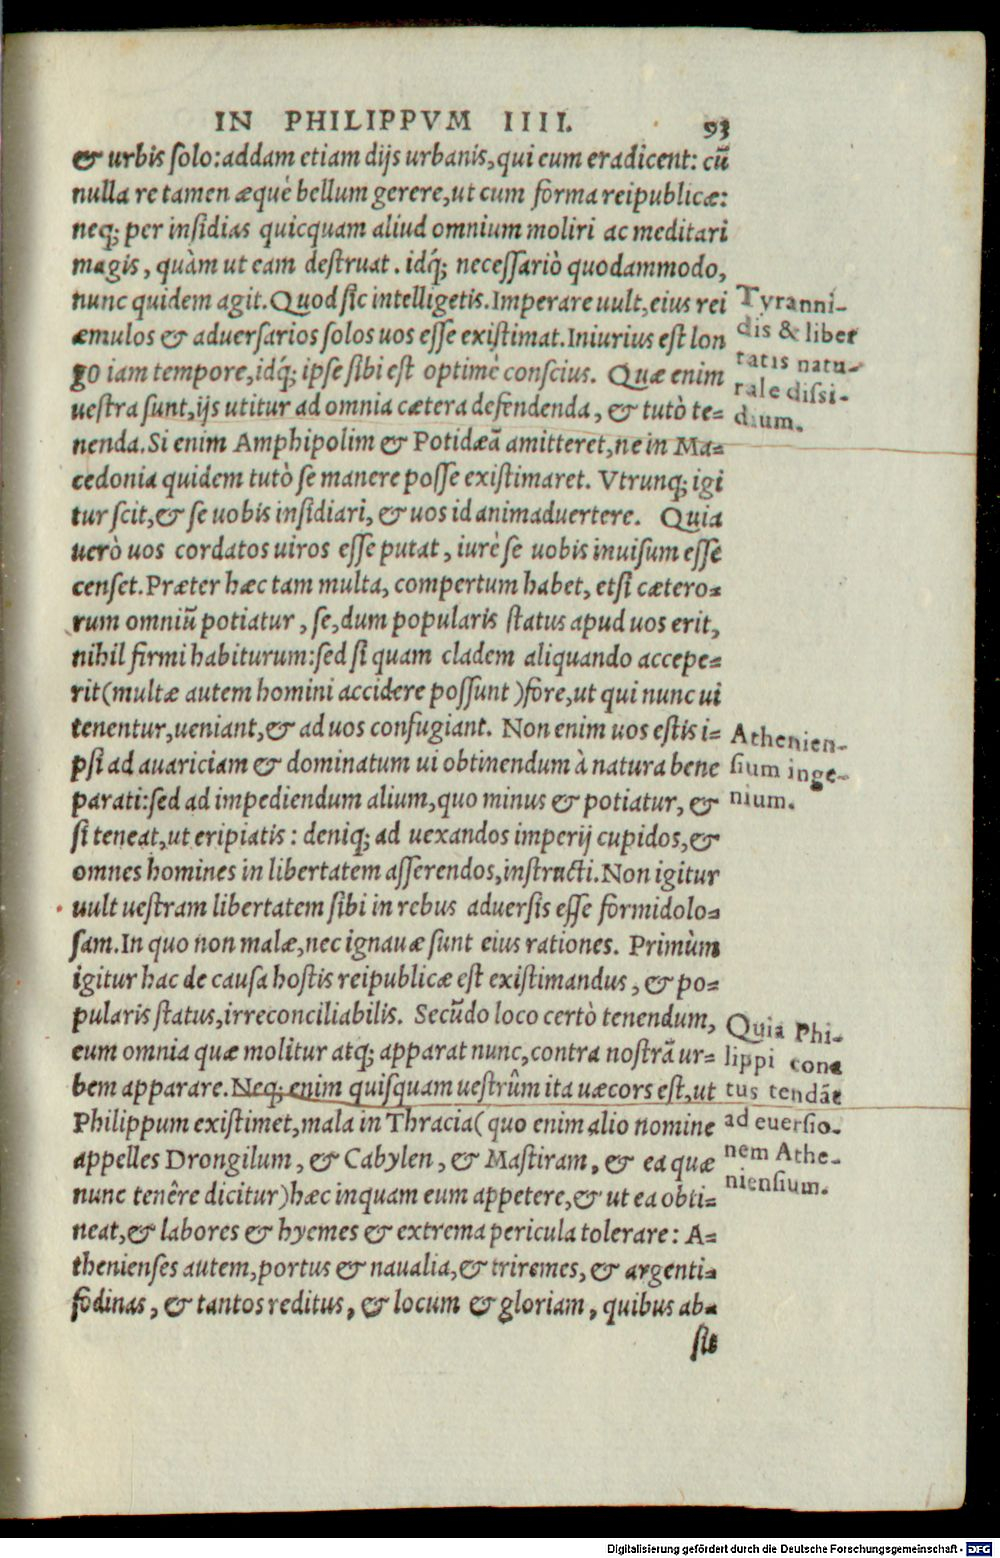 IN PHILIPPVM IIII. 93
& urbis solo: addam etiam dijs urbanis, qui eum eradicent: cū
nulla re tamen æquè bellum gerere, ut cum forma reipublicæ:
neq; per insidias quicquam aliud omnium moliri ac meditari
magis, quàm ut eam destruat. idq́; necessariò quodammodo,
nunc quidem agit. Quod sic intelligetis. Imperare uult, eius rei
æmulos & aduersarios solos uos esse existimat. Iniurius est lon
go iam tempore, idq́; ipse sibi est optimè conscius. Quæ enim
uestra sunt, ijs utitur ad omnia cætera defendenda, & tutò te=
nenda. Si enim Amphipolim & Potidæā amitteret, ne in Ma=
cedonia quidem tutò se manere posse existimaret. Vtrunq; igi
tur scit, & se uobis insidiari, & uos id animaduertere. Quia
uerò uos cordatos uiros esse putat, iurè se uobis inuisum esse
censet. Præter hæc tam multa, compertum habet, etsi cætero=
rum omniū potiatur, se, dum popularis status apud uos erit,
nihil firmi habiturum: sed si quam cladem aliquando accepe=
rit (multæ autem homini accidere possunt) fore, ut qui nunc ui
tenentur, ueniant, & ad uos confugiant. Non enim uos estis i=
psi ad auariciam & dominatum ui obtinendum à natura bene
parati: sed ad impediendum alium, quo minus & potiatur, &
si teneat, ut eripiatis: deniq; ad uexandos imperij cupidos, &
omnes homines in libertatem asserendos, instructi. Non igitur
uult uestram libertatem sibi in rebus aduersis esse formidolo=
sam. In quo non malæ, nec ignauæ sunt eius rationes. Primùm
igitur hac de causa hostis reipublicæ est existimandus, & po=
pularis status, irreconciliabilis. Secūdo loco certò tenendum,
eum omnia quæ molitur atq; apparat nunc, contra nostrā ur=
bem apparare. Neq; enim quisquam uestrûm ita uæcors est, ut
Philippum existimet, mala in Thracia (quo enim alio nomine
appelles Drongilum, & Cabylen, & Mastiram, & ea quæ
nunc tenêre dicitur) hæc inquam eum appetere, & ut ea obti=
neat, & labores & hyemes & extrema pericula tolerare: A=
thenienses autem, portus & naualia, & triremes, & argenti=
fodinas, & tantos reditus, & locum & gloriam, quibus ab=
sit
Tyranni-
dis & liber
tatis natu-
rale dissi-
dium.
Athenien-
sium inge-
nium.
Quia Phi-
lippi cona
tus tendāt
ad euersio-
nem Athe-
niensium.
Digitalisierung gefördert durch die Deutsche Forschungsgemeinschaft - DFG